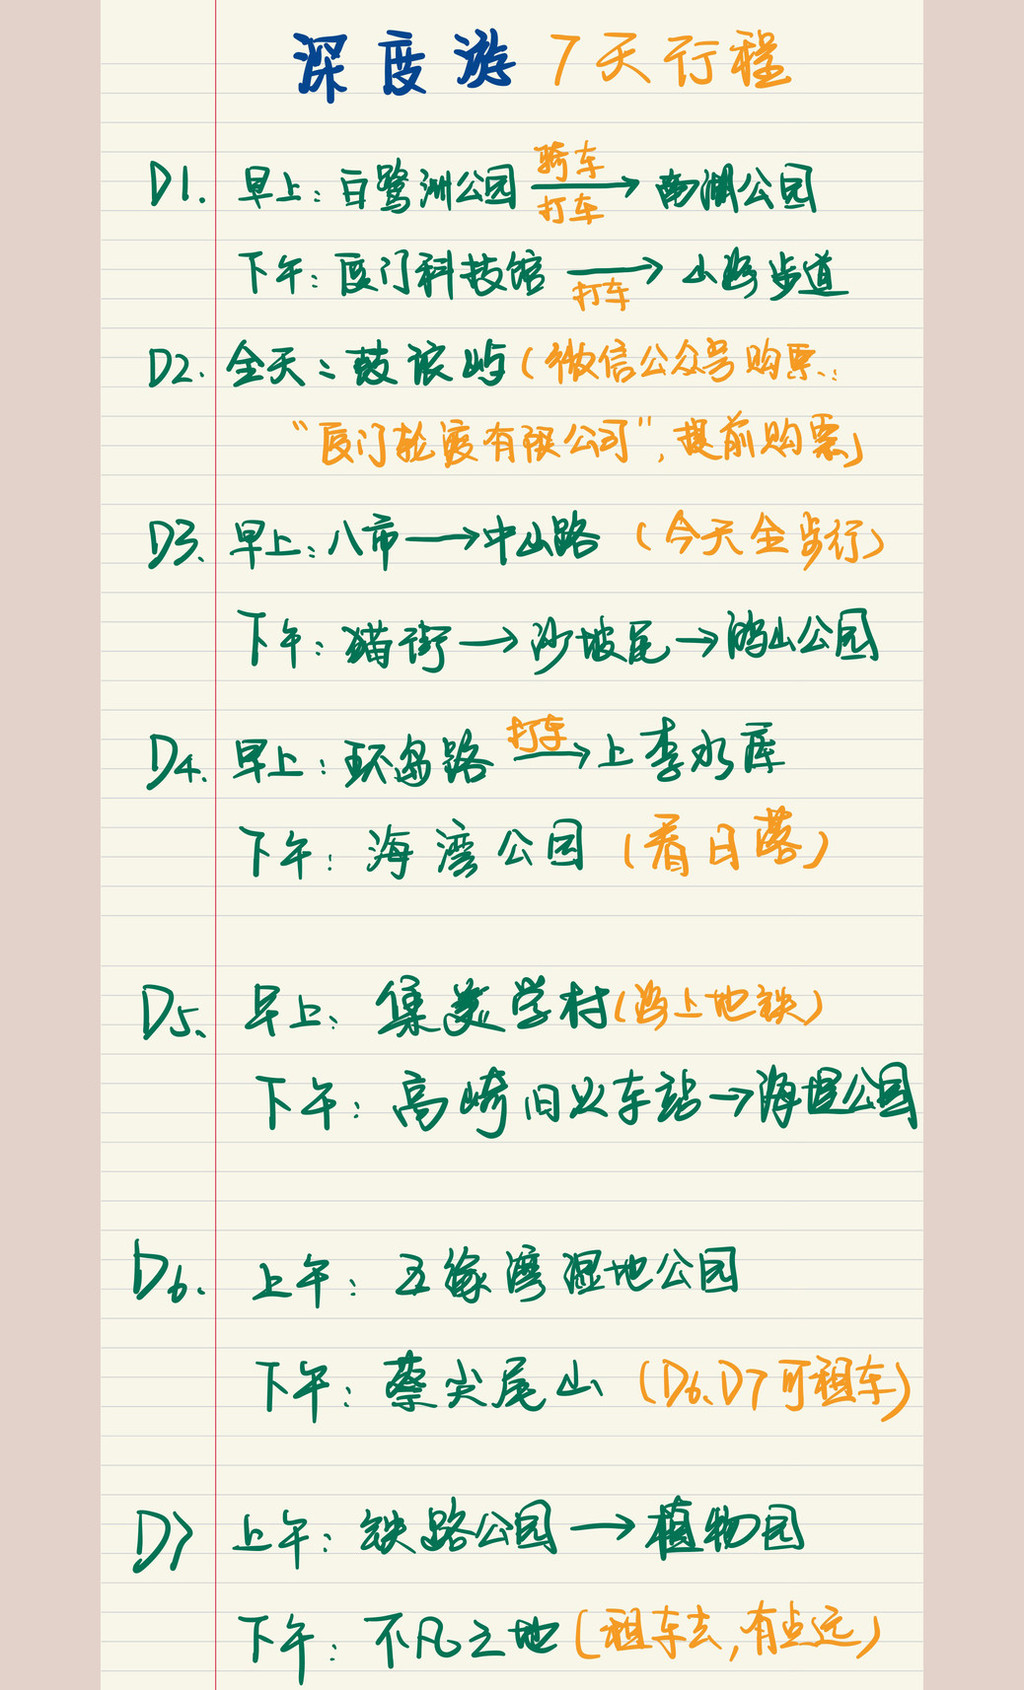 深度游 7天行程
骑车
D1. 早上：白鹭洲公园 → 南湖公园
打车
下午：厦门科技馆 → 山海步道
打车
D2. 全天：鼓浪屿（微信公众号购票：
“厦门轮渡有限公司”，提前购票）
D3、早上：八市→中山路（今天全步行）
下午：猫街→沙坡尾→鸿山公园
打车
D4. 早上：环岛路 → 上李水库
下午：海湾公园（看日落）
D5、早上、集美学村（海上地铁）
下午：高崎旧火车站→海堤公园
D6. 上午：五缘湾湿地公园
下午：蔡尖尾山（D6、D7可租车）
D7 上午：铁路公园→植物园
下午：不凡之地（租车去，有点远）